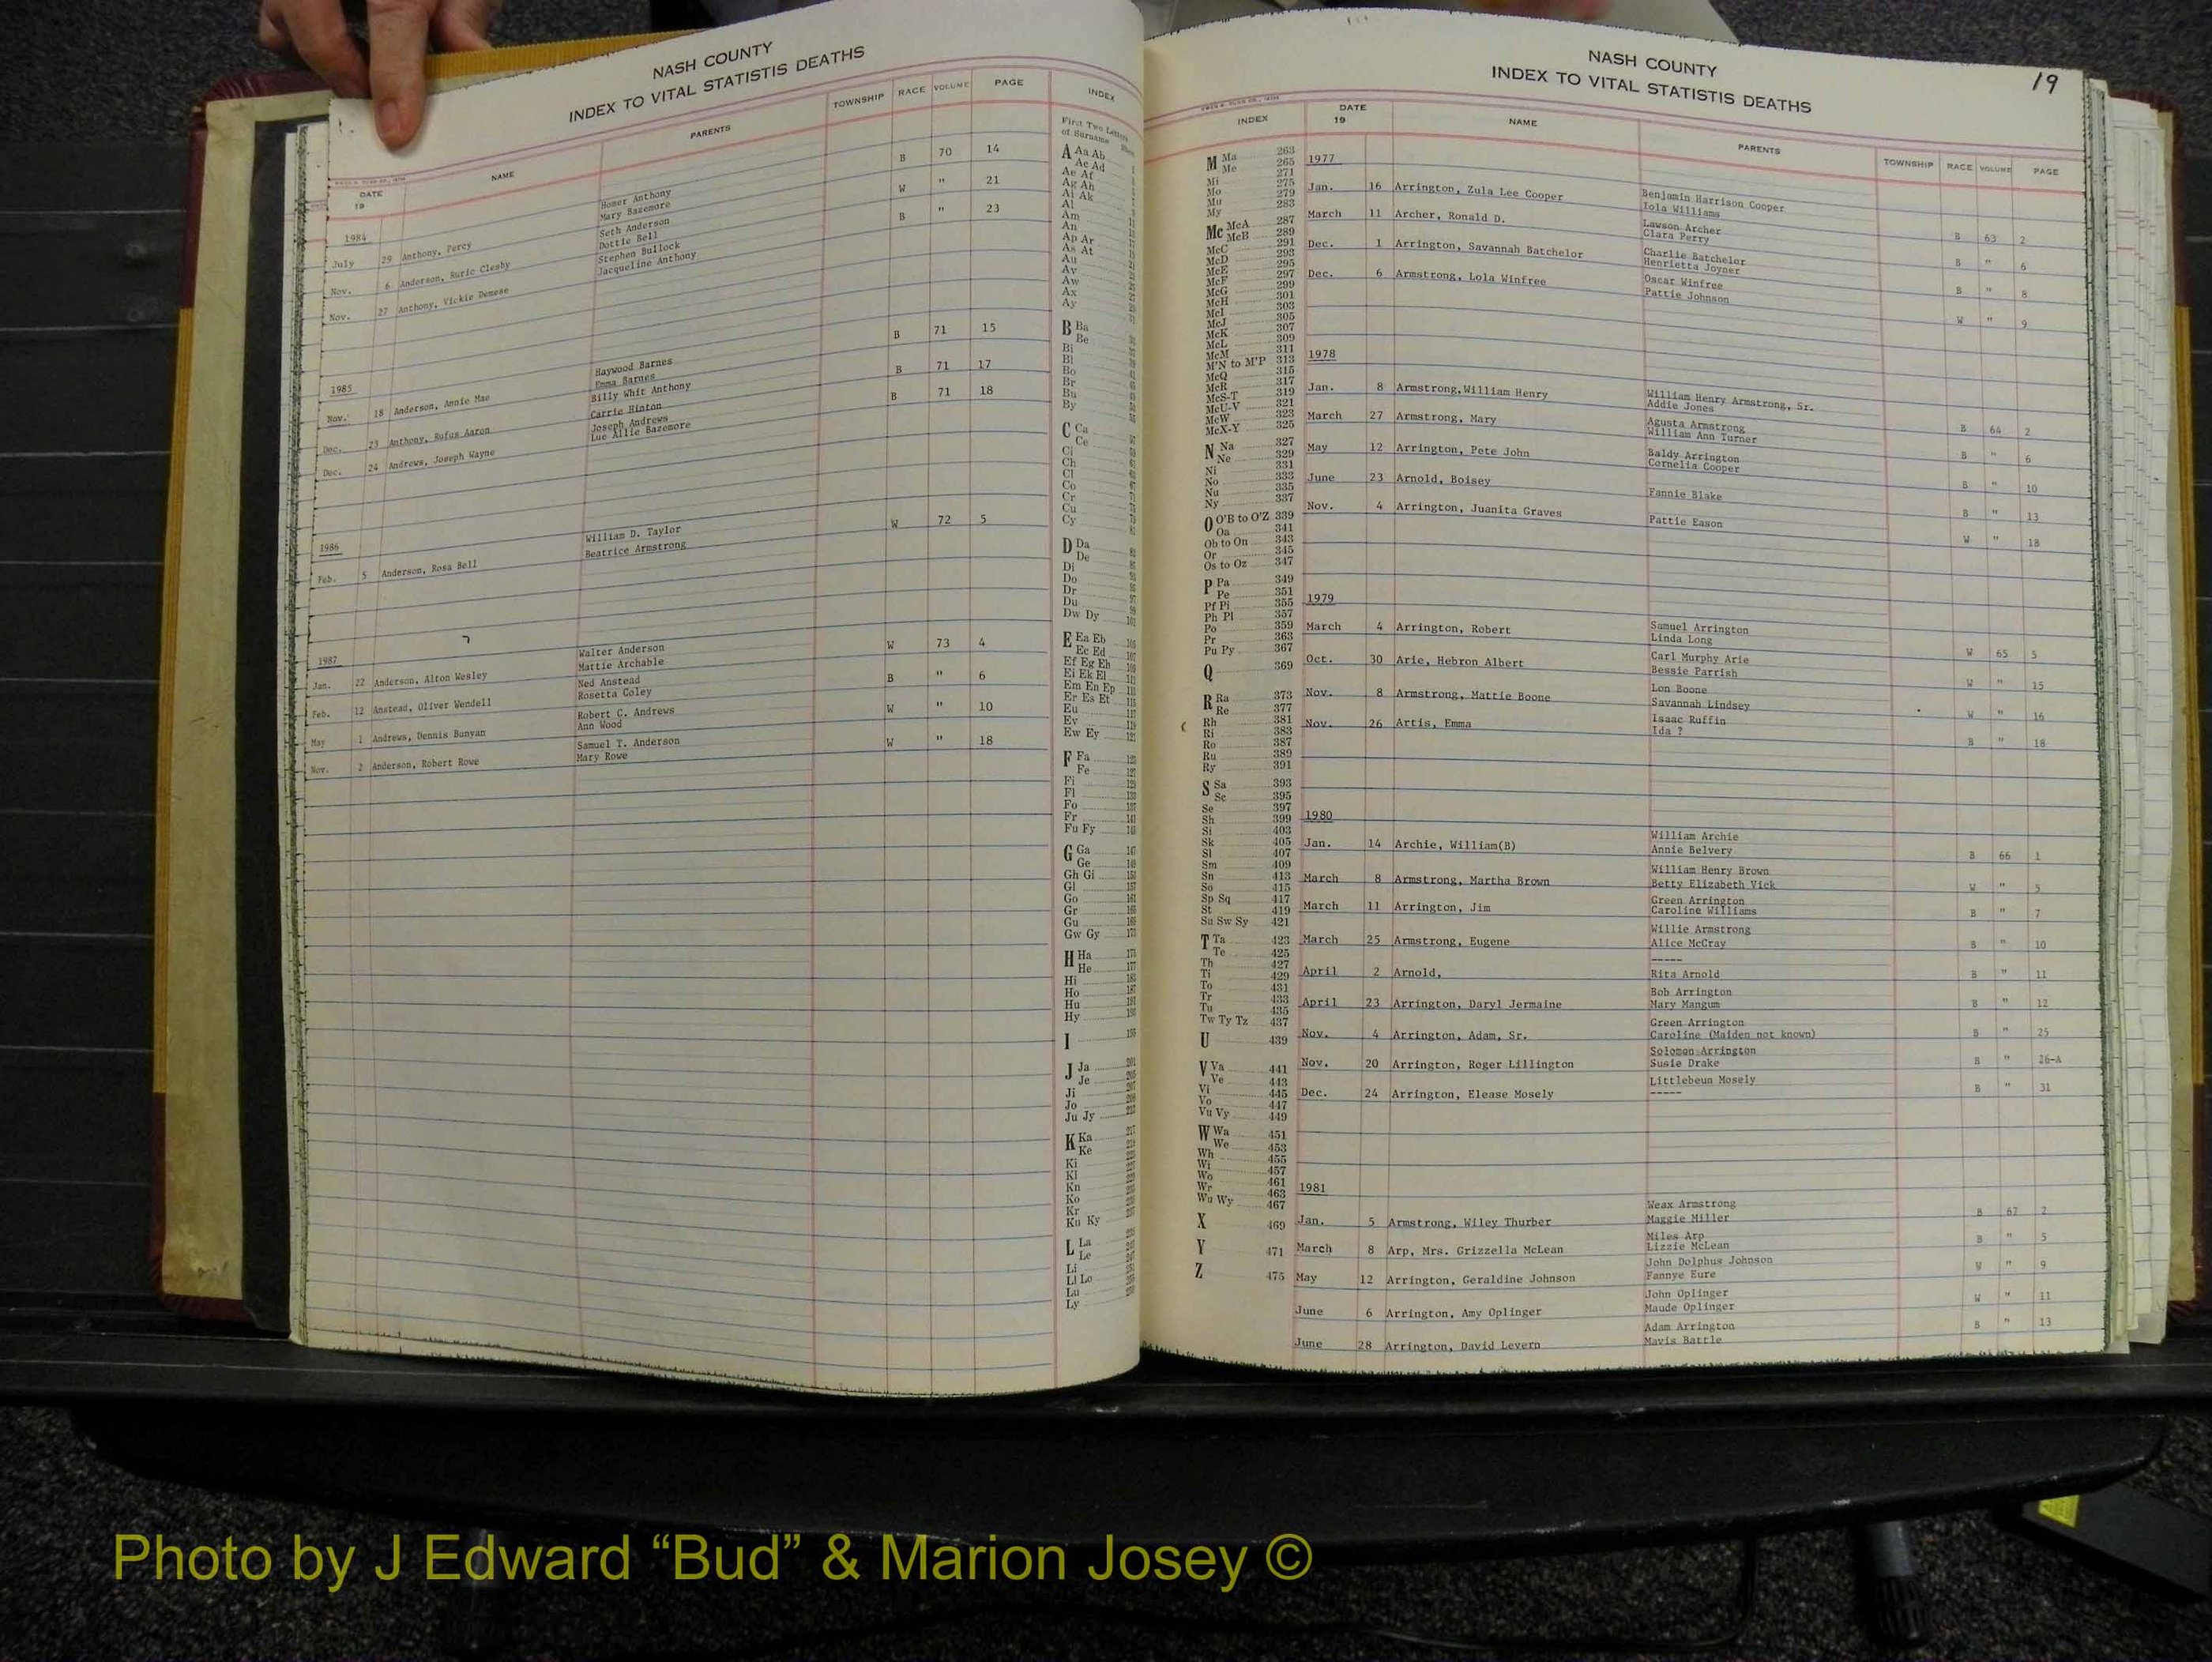 NASH COUNTY
INDEX TO VITAL STATISTIS DEATHS
DATE
19
NAME
PARENTS
TOWNSHIP RACE VOLUME PAGE
1984
July 29 Anthony, Percy Homer Anthony B 70 14
Mary Bazemore
Nov. 6 Anderson, Ruric Clesby Seth Anderson W " 21
Dottie Bell
Nov. 27 Anthony, Vickie Denese Stephen Bullock B " 23
Jacqueline Anthony
1985
Nov. 18 Anderson, Annie Mae Haywood Barnes B 71 15
Emma Barnes
Dec. 23 Anthony, Rufus Aaron Billy Whit Anthony B 71 17
Carrie Hinton
Dec. 24 Andrews, Joseph Wayne Joseph Andrews B 71 18
Lue Allie Bazemore
1986
Feb. 5 Anderson, Rosa Bell William D. Taylor W 72 5
Beatrice Armstrong
1987
Jan. 22 Anderson, Alton Wesley Walter Anderson W 73 4
Mattie Archable
Feb. 12 Anstead, Oliver Wendell Ned Anstead B " 6
Rosetta Coley
May 1 Andrews, Dennis Bunyan Robert C. Andrews W " 10
Ann Wood
Nov. 2 Anderson, Robert Rowe Samuel T. Anderson W " 18
Mary Rowe
INDEX
First Two Letters
of Surname
A Aa Ab
Ac Ad
Ae Af
Ag Ah
Ai Ak
Al
Am
An
Ap Ar
As At
Au
Av
Aw
Ax
Ay
B Ba
Be
Bi
Bl
Bo
Br
Bu
By
C Ca
Ce
Ci
Ch
Cl
Co
Cr
Cu
Cy
D Da
De
Di
Do
Dr
Du
Dw Dy
E Ea Eb
Ec Ed
Ef Eg Eh
Ei Ek El
Em En Ep
Er Es Et
Eu
Ev
Ew Ey
F Fa
Fe
Fi
Fl
Fo
Fr
Fu Fy
G Ga
Ge
Gh Gi
Gl
Go
Gr
Gu
Gw Gy
H Ha
He
Hi
Ho
Hu
Hy
I
J Ja
Je
Ji
Jo
Ju Jy
K Ka
Ke
Ki
Kl
Kn
Ko
Kr
Ku Ky
L La
Le
Li
Ll Lo
Lu
Ly
19
NASH COUNTY
INDEX TO VITAL STATISTIS DEATHS
INDEX
M Ma 263
Me 265
271
Mi 275
Mo 279
Mu 283
My
Mc McA 287
McB 289
McC 291
McD 293
McE 295
McF 297
McG 299
McH 301
McI 303
McJ 305
McK 307
McL 309
McM 311
M'N to M'P 313
McQ 315
McR 317
McS-T 319
McU-V 321
McW 323
McX-Y 325
N Na 327
Ne 329
Ni 331
No 333
Nu 335
Ny 337
O O'B to O'Z 339
Oa 341
Ob to On 343
Or 345
Os to Oz 347
P Pa 349
Pe 351
Pf Pi 355
Ph Pl 357
Po 359
Pr 363
Pu Py 367
Q 369
R Ra 373
Re 377
Rh 381
Ri 383
Ro 387
Ru 389
Ry 391
S Sa 393
Sc 395
Se 397
Sh 399
Si 403
Sk 405
Sl 407
Sm 409
Sn 413
So 415
Sp Sq 417
St 419
Su Sw Sy 421
T Ta 423
Te 425
Th 427
Ti 429
To 431
Tr 433
Tu 435
Tw Ty Tz 437
U 439
V Va 441
Ve 443
Vi 445
Vo 447
Vu Vy 449
W Wa 451
We 453
Wh 455
Wi 457
Wo 461
Wr 463
Wu Wy 467
X 469
Y 471
Z 475
DATE
19
NAME
PARENTS
TOWNSHIP RACE VOLUME PAGE
1977
Jan. 16 Arrington, Zula Lee Cooper Benjamin Harrison Cooper B 63 2
Lola Williams
March 11 Archer, Ronald D. Lawson Archer B " 6
Clara Perry
Dec. 1 Arrington, Savannah Batchelor Charlie Batchelor B " 8
Henrietta Joyner
Dec. 6 Armstrong, Lola Winfree Oscar Winfree W " 9
Pattie Johnson
1978
Jan. 8 Armstrong,William Henry William Henry Armstrong, Sr. B 64 2
Addie Jones
March 27 Armstrong, Mary Agusta Armstrong B " 6
William Ann Turner
May 12 Arrington, Pete John Baldy Arrington B " 10
Cornelia Cooper
June 23 Arnold, Boisey B " 13
Fannie Blake
Nov. 4 Arrington, Juanita Graves W " 18
Pattie Eason
1979
March 4 Arrington, Robert Samuel Arrington W 65 5
Linda Long
Oct. 30 Arie, Hebron Albert Carl Murphy Arie W " 15
Bessie Parrish
Nov. 8 Armstrong, Mattie Boone Lon Boone W " 16
Savannah Lindsey
Nov. 26 Artis, Emma Isaac Ruffin B " 18
Ida ?
1980
Jan. 14 Archie, William(B) William Archie B 66 1
Annie Belvery
March 8 Armstrong, Martha Brown William Henry Brown W " 5
Betty Elizabeth Vick
March 11 Arrington, Jim Green Arrington B " 7
Caroline Williams
March 25 Armstrong, Eugene Willie Armstrong B " 10
Alice McCray
April 2 Arnold, ----- B " 11
Rita Arnold
April 23 Arrington, Daryl Jermaine Bob Arrington B " 12
Mary Mangum
Nov. 4 Arrington, Adam, Sr. Green Arrington B " 25
Caroline (Maiden not known)
Nov. 20 Arrington, Roger Lillington Solomon Arrington B " 26-A
Susie Drake
Dec. 24 Arrington, Elease Mosely Littlebeun Mosely B " 31
-----
1981
Jan. 5 Armstrong, Wiley Thurber Weax Armstrong B 67 2
Maggie Miller
March 8 Arp, Mrs. Grizzella McLean Miles Arp B " 5
Lizzie McLean
May 12 Arrington, Geraldine Johnson John Dolphus Johnson W " 9
Fannye Eure
June 6 Arrington, Amy Oplinger John Oplinger W " 11
Maude Oplinger
June 28 Arrington, David Levern Adam Arrington B " 13
Mavis Battle
Photo by J Edward “Bud” & Marion Josey ©